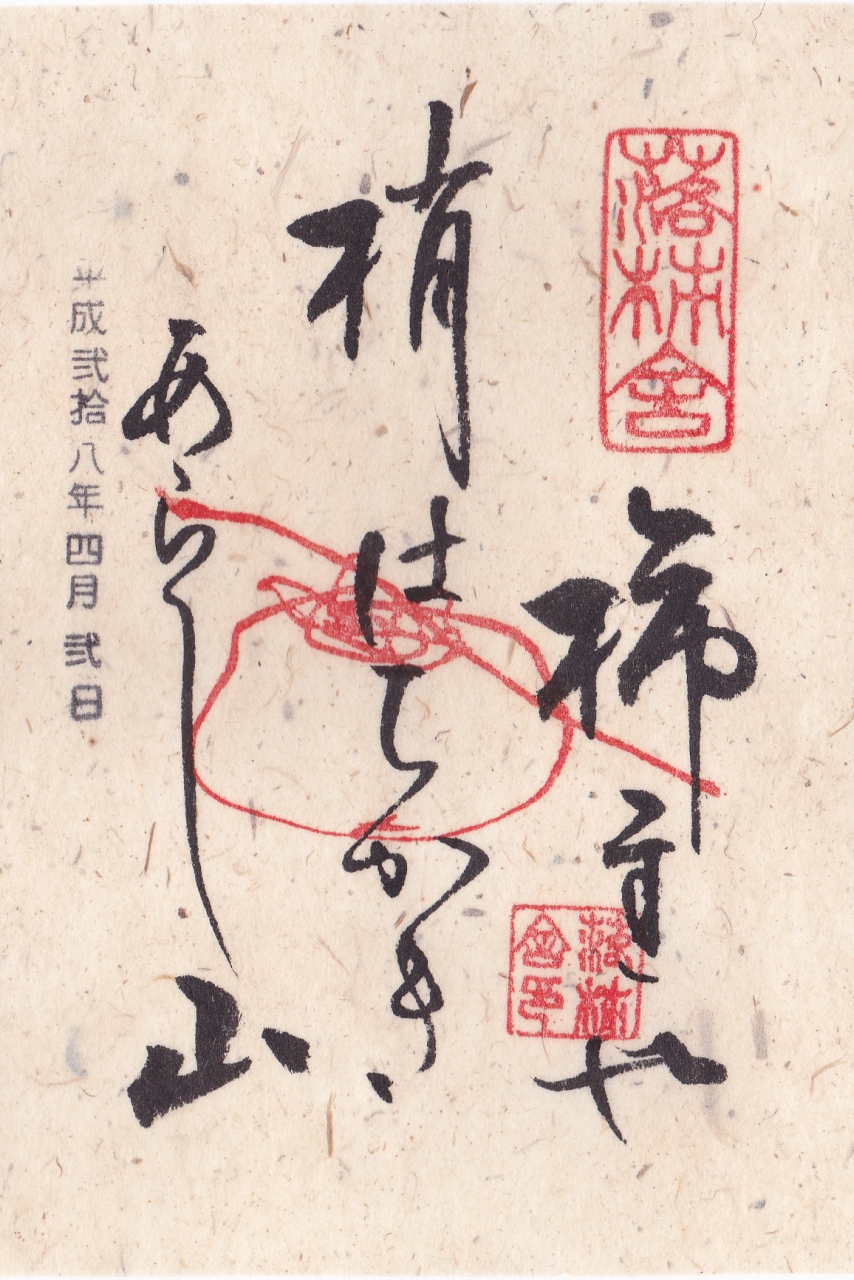 落柿舎
柿主や
梢はちかき
あらし山
落柿舎印
平成弐拾八年四月弐日